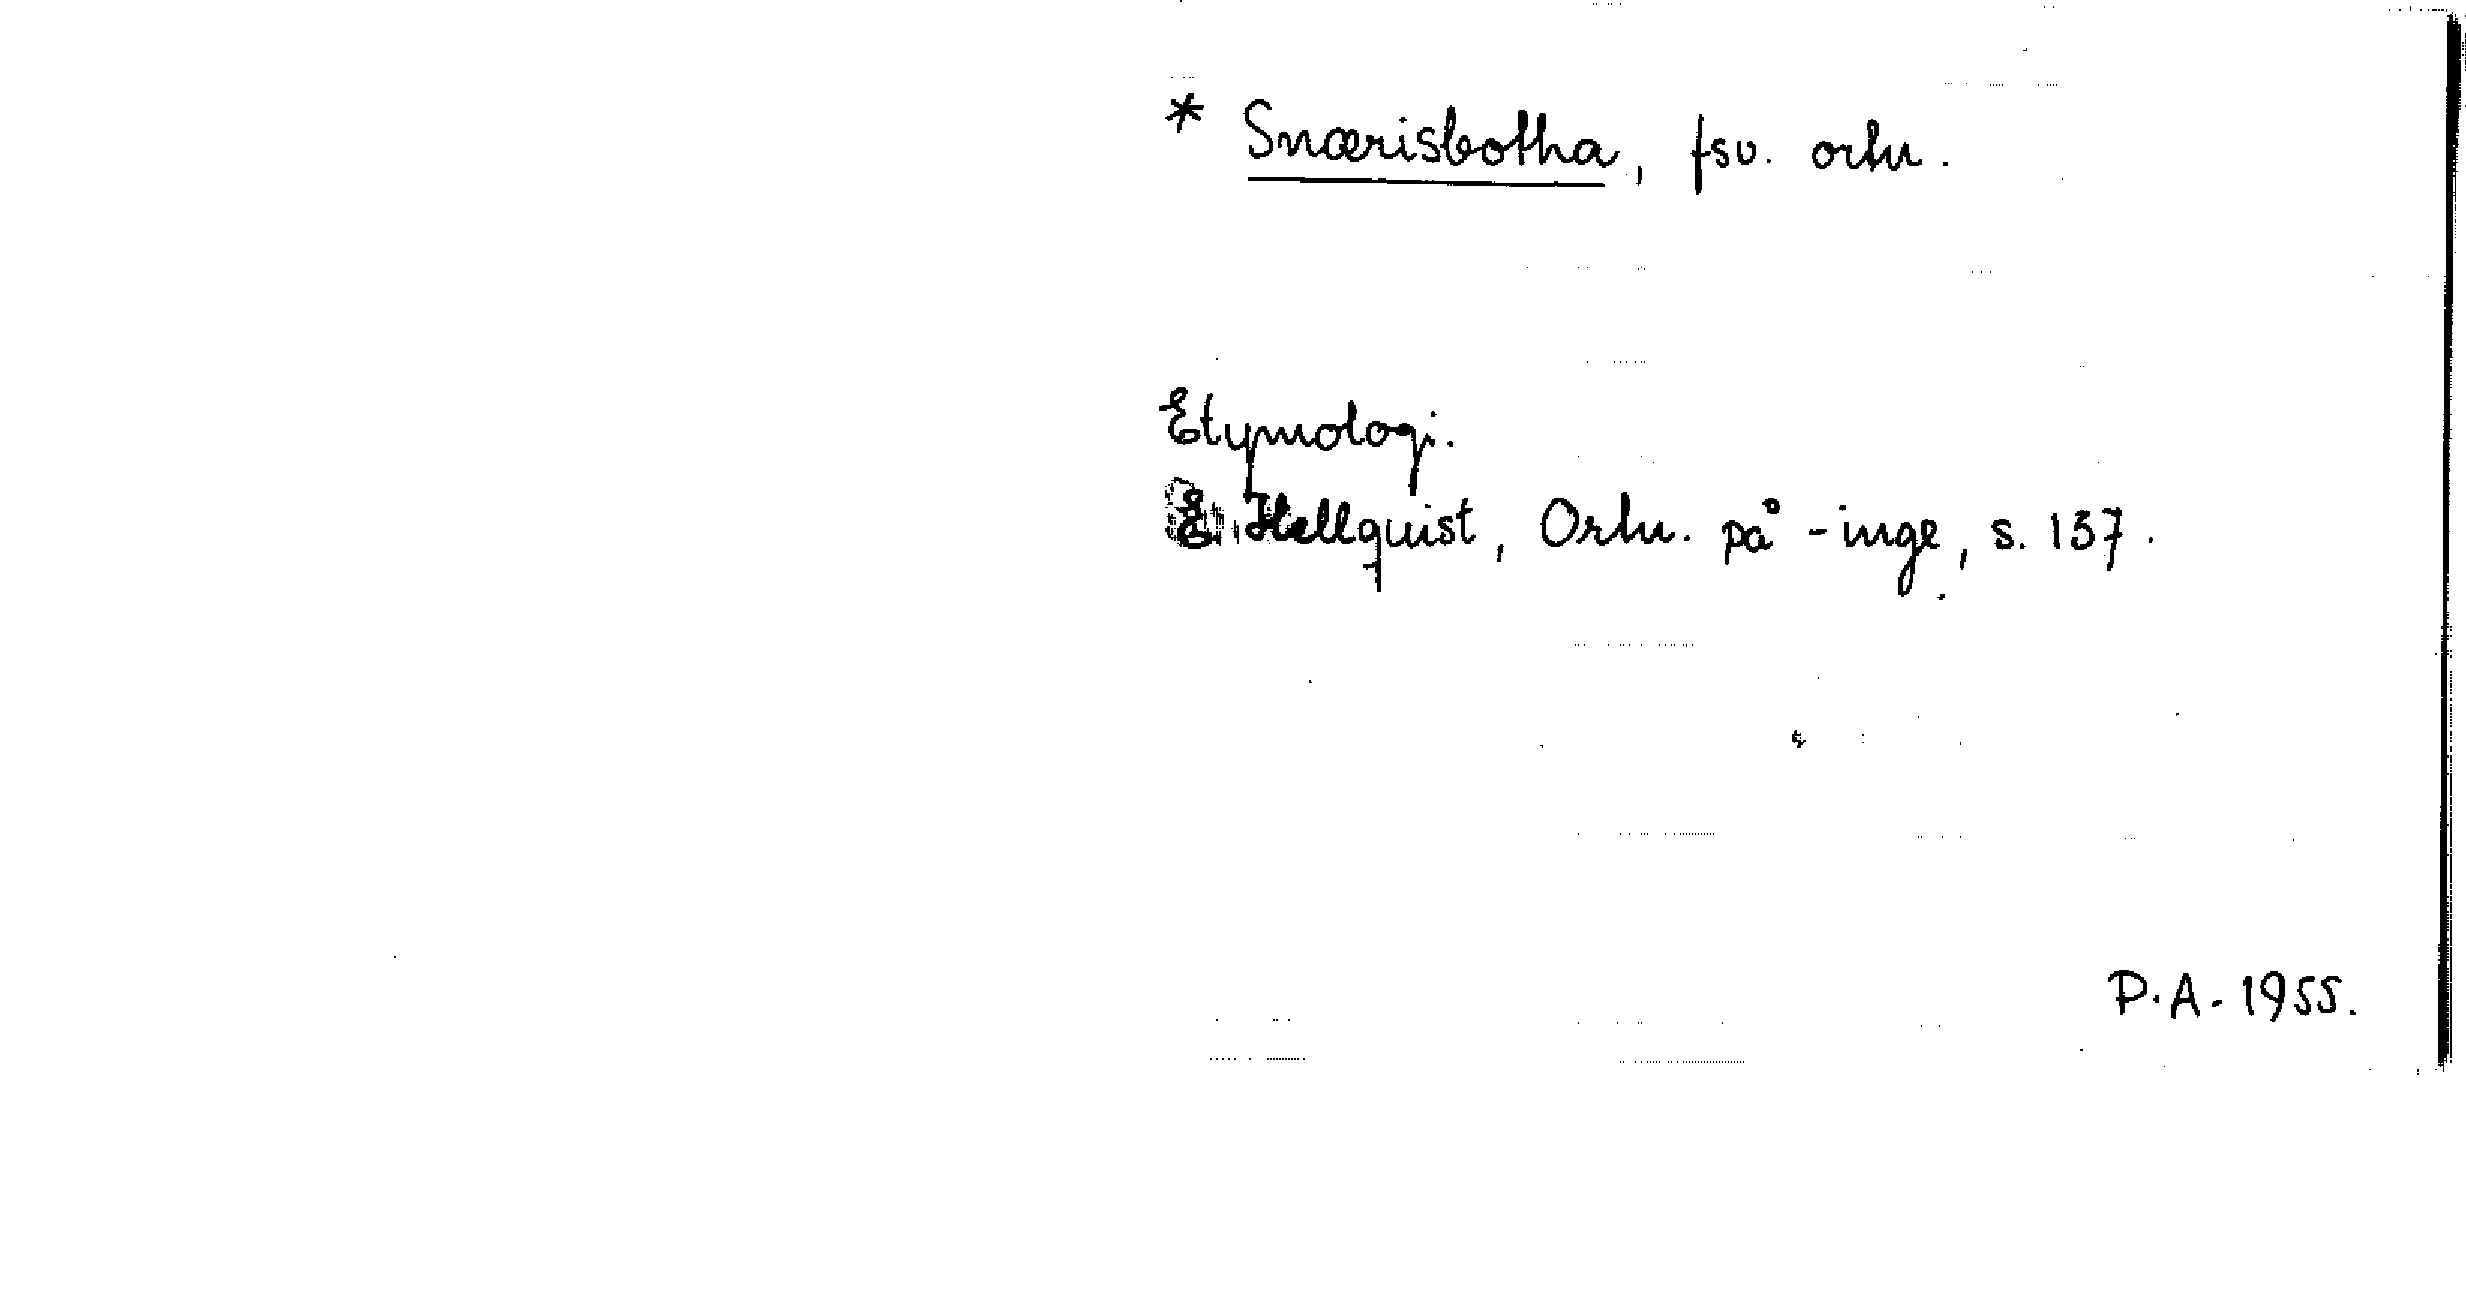 * Snærisbotha, fsv. ortn.
Etymologi.
E. Hellquist, Ortn. på -inge, s. 137.
P.A. 1955.